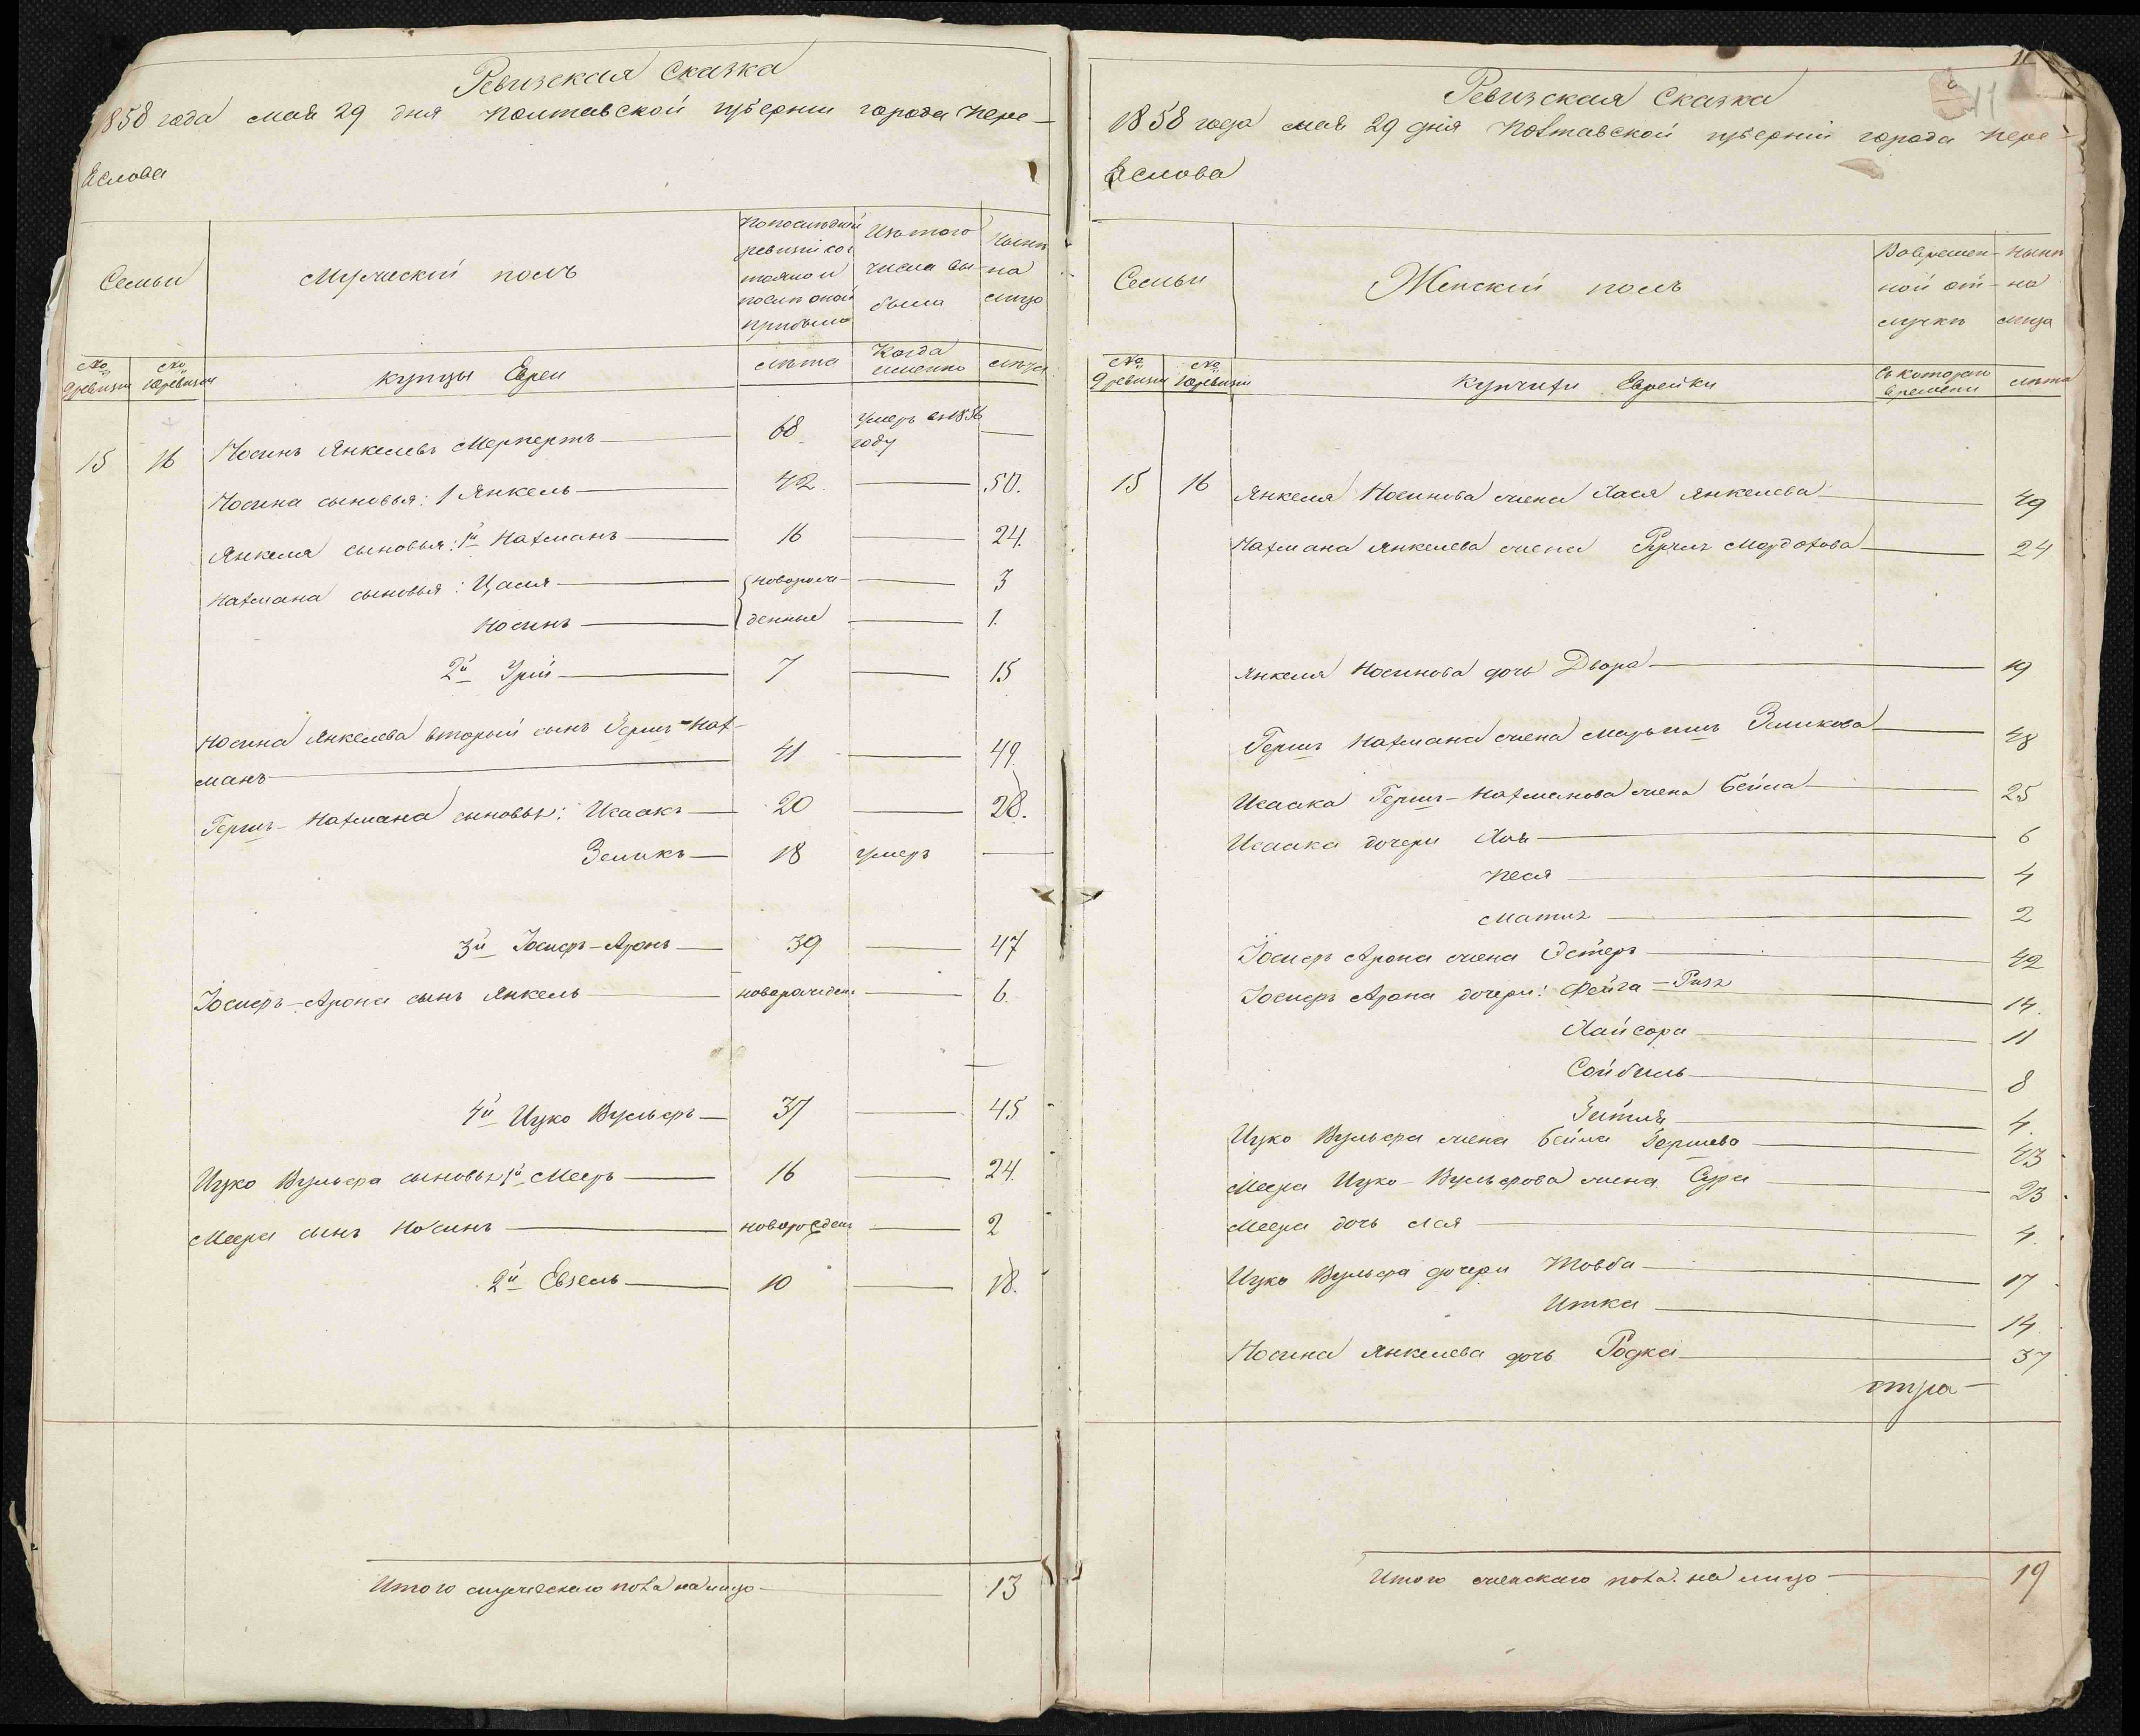 Ревизская Сказка
1858 года мая 29 дня Полтавской губернии города Пере-
яслова
Семьи
Мужеский полъ
По последней ревизіи состояло и после оной прибыло
Изъ того числа выбыло
Ныне на лицо
№ 9 ревизіи
№ 10 ревизіи
купцы Евреи
лета
Когда именно
лета
15 16 Носинъ Янкелевъ Мерперть 68 умеръ въ 1856 году
Носина сыновья: 1 Янкель 42 50.
Янкеля сыновья: 1й Нахманъ 16 24.
Нахмана сыновья: Цаля новорож- 3
Носинъ денные 1.
2й Урій 7 15
Носина Янкелева вторый сынъ Гершъ-Нах-
манъ 41 49.
Гершъ-Нахмана сыновья: Исаакъ 20 28.
Зеликъ 18 умеръ
3й Іосифъ-Аронъ 39 47
Іосифъ-Арона сынъ Янкель новорожден 6.
4й Ицко Вульфъ 37 45
Ицко Вульфа сыновья 1й Мееръ 16 24.
Меера сынъ Носинъ новорожден 2
2й Евзель 10 18.
Итого мужескаго пола на лицо 13
11
11
Ревизская Сказка
1858 года мая 29 дня Полтавской губерніи города Пере-
яслова
Семьи
Женскій полъ
Во времен-ной от-лучке
Ныне на лицо
№ 9 ревизіи
№ 10 ревизіи
купчихи Еврейки
Съ котораго времени
лета
15 16 Янкеля Носинова жена Хася Янкелева 49
Нахмана Янкелева жена Рухль Мордохова 24
Янкеля Носинова дочь Двора 19
Гершъ Нахмана жена Марьяшъ Зеликова 48
Исаака Гершъ-Нахманова жена Бейла 25
Исаака дочери Хая 6
Песя 4
Матля 2
Іосифъ Арона жена Эстеръ 42
Іосифъ Арона дочери: Фейга-Риза 14.
Хайсора 11
Сойбиль 8
Зитля 4.
Ицко Вульфа жена Бейла Гершева 43
Меера Ицко-Вульфова жена Сура 23
Меера дочь Лая 4.
Ицко Вульфа дочери Товба 17
Итка 14
Носина Янкелева дочь Родка 37
Итого женскаго пола на лицо 19